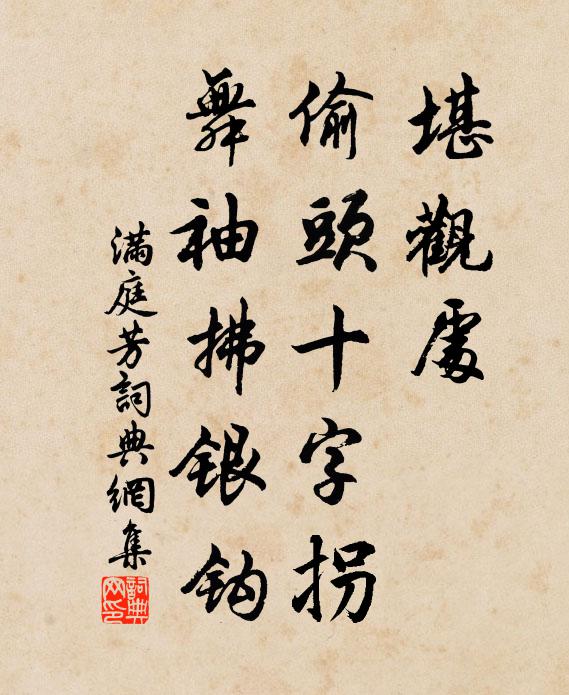 堪觀處
偷頭十字拐
舞袖拂銀鈎
滿庭芳詞典網集
詞典網印